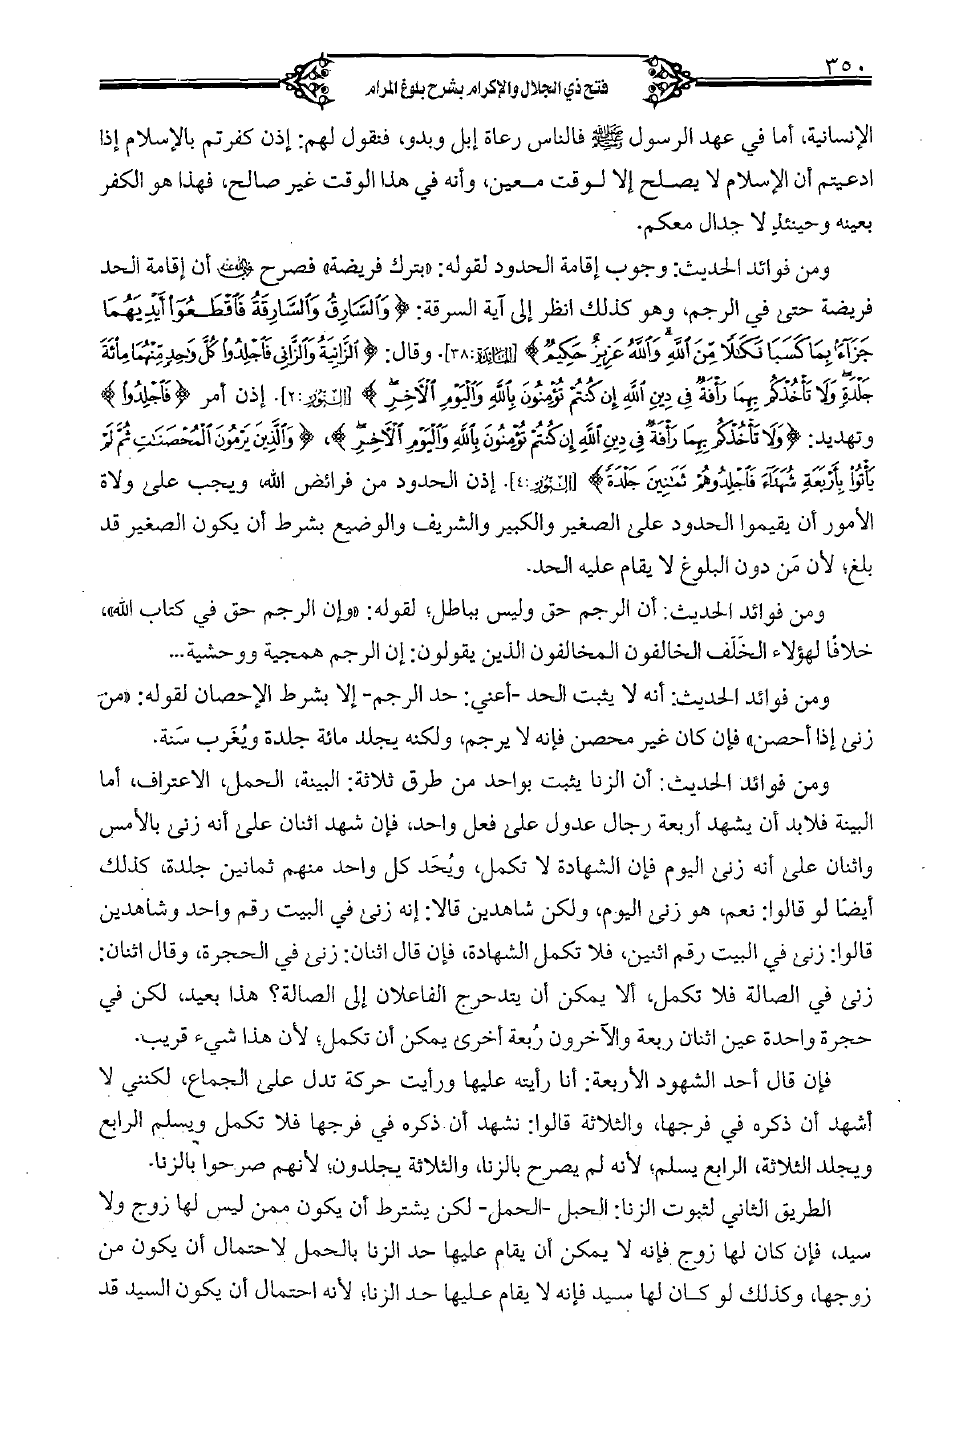 ٣٥٠
فتح ذي الجلال والإكرام بشرح بلوغ المرام
الإنسانية، أما في عهد الرسول ﷺ فالناس رعاة إبل وبدو، فنقول لهم: إذن كفرتم بالإسلام إذا
ادعيتم أن الإسلام لا يصلح إلا لوقت معين، وأنه في هذا الوقت غير صالح، فهذا هو الكفر
بعينه وحينئذٍ لا جدال معكم.
ومن فوائد الحديث: وجوب إقامة الحدود لقوله: «بترك فريضة» فصرح رضي الله عنه أن إقامة الحد
فريضة حتى في الرجم، وهو كذلك انظر إلى آية السرقة: ﴿وَٱلسَّارِقُ وَٱلسَّارِقَةُ فَٱقۡطَعُوٓاْ أَيۡدِيَهُمَا
جَزَآءَۢ بِمَا كَسَبَا نَكَٰلٗا مِّنَ ٱللَّهِۗ وَٱللَّهُ عَزِيزٌ حَكِيمٞ﴾ [المائدة:٣٨]. وقال: ﴿ٱلزَّانِيَةُ وَٱلزَّانِي فَٱجۡلِدُواْ كُلَّ وَٰحِدٖ مِّنۡهُمَا مِاْئَةَ
جَلۡدَةٖۖ وَلَا تَأۡخُذۡكُم بِهِمَا رَأۡفَةٞ فِي دِينِ ٱللَّهِ إِن كُنتُمۡ تُؤۡمِنُونَ بِٱللَّهِ وَٱلۡيَوۡمِ ٱلۡأٓخِرِۖ﴾ [النور:٢]. إذن أمر ﴿فَٱجۡلِدُواْ﴾
وتهديد: ﴿وَلَا تَأۡخُذۡكُم بِهِمَا رَأۡفَةٞ فِي دِينِ ٱللَّهِ إِن كُنتُمۡ تُؤۡمِنُونَ بِٱللَّهِ وَٱلۡيَوۡمِ ٱلۡأٓخِرِۖ﴾، ﴿وَٱلَّذِينَ يَرۡمُونَ ٱلۡمُحۡصَنَٰتِ ثُمَّ لَمۡ
يَأۡتُواْ بِأَرۡبَعَةِ شُهَدَآءَ فَٱجۡلِدُوهُمۡ ثَمَٰنِينَ جَلۡدَةٗ﴾ [النور:٤]. إذن الحدود من فرائض الله، ويجب على ولاة
الأمور أن يقيموا الحدود على الصغير والكبير والشريف والوضيع بشرط أن يكون الصغير قد
بلغ؛ لأن مَن دون البلوغ لا يقام عليه الحد.
ومن فوائد الحديث: أن الرجم حق وليس بباطل؛ لقوله: «وإن الرجم حق في كتاب الله»،
خلافًا لهؤلاء الخَلَف الخالفون المخالفون الذين يقولون: إن الرجم همجية ووحشية...
ومن فوائد الحديث: أنه لا يثبت الحد -أعني: حد الرجم- إلا بشرط الإحصان لقوله: «من
زنى إذا أحصن» فإن كان غير محصن فإنه لا يرجم، ولكنه يجلد مائة جلدة ويُغَرب سَنة.
ومن فوائد الحديث: أن الزنا يثبت بواحد من طرق ثلاثة: البينة، الحمل، الاعتراف، أما
البينة فلابد أن يشهد أربعة رجال عدول على فعل واحد، فإن شهد اثنان على أنه زنى بالأمس
واثنان على أنه زنى اليوم فإن الشهادة لا تكمل، ويُحَد كل واحد منهم ثمانين جلدة، كذلك
أيضًا لو قالوا: نعم، هو زنى اليوم، ولكن شاهدين قالا: إنه زنى في البيت رقم واحد وشاهدين
قالوا: زنى في البيت رقم اثنين، فلا تكمل الشهادة، فإن قال اثنان: زنى في الحجرة، وقال اثنان:
زنى في الصالة فلا تكمل، ألا يمكن أن يتدحرج الفاعلان إلى الصالة؟ هذا بعيد، لكن في
حجرة واحدة عين اثنان ربعة والآخرون رُبعة أخرى يمكن أن تكمل؛ لأن هذا شيء قريب.
فإن قال أحد الشهود الأربعة: أنا رأيته عليها ورأيت حركة تدل على الجماع، لكنني لا
أشهد أن ذكره في فرجها، والثلاثة قالوا: نشهد أن ذكره في فرجها فلا تكمل ويسلم الرابع
ويجلد الثلاثة، الرابع يسلم؛ لأنه لم يصرح بالزنا، والثلاثة يجلدون؛ لأنهم صرحوا بالزنا.
الطريق الثاني لثبوت الزنا: الحبل -الحمل- لكن يشترط أن يكون ممن ليس لها زوج ولا
سيد، فإن كان لها زوج فإنه لا يمكن أن يقام عليها حد الزنا بالحمل لاحتمال أن يكون من
زوجها، وكذلك لو كان لها سيد فإنه لا يقام عليها حد الزنا؛ لأنه احتمال أن يكون السيد قد